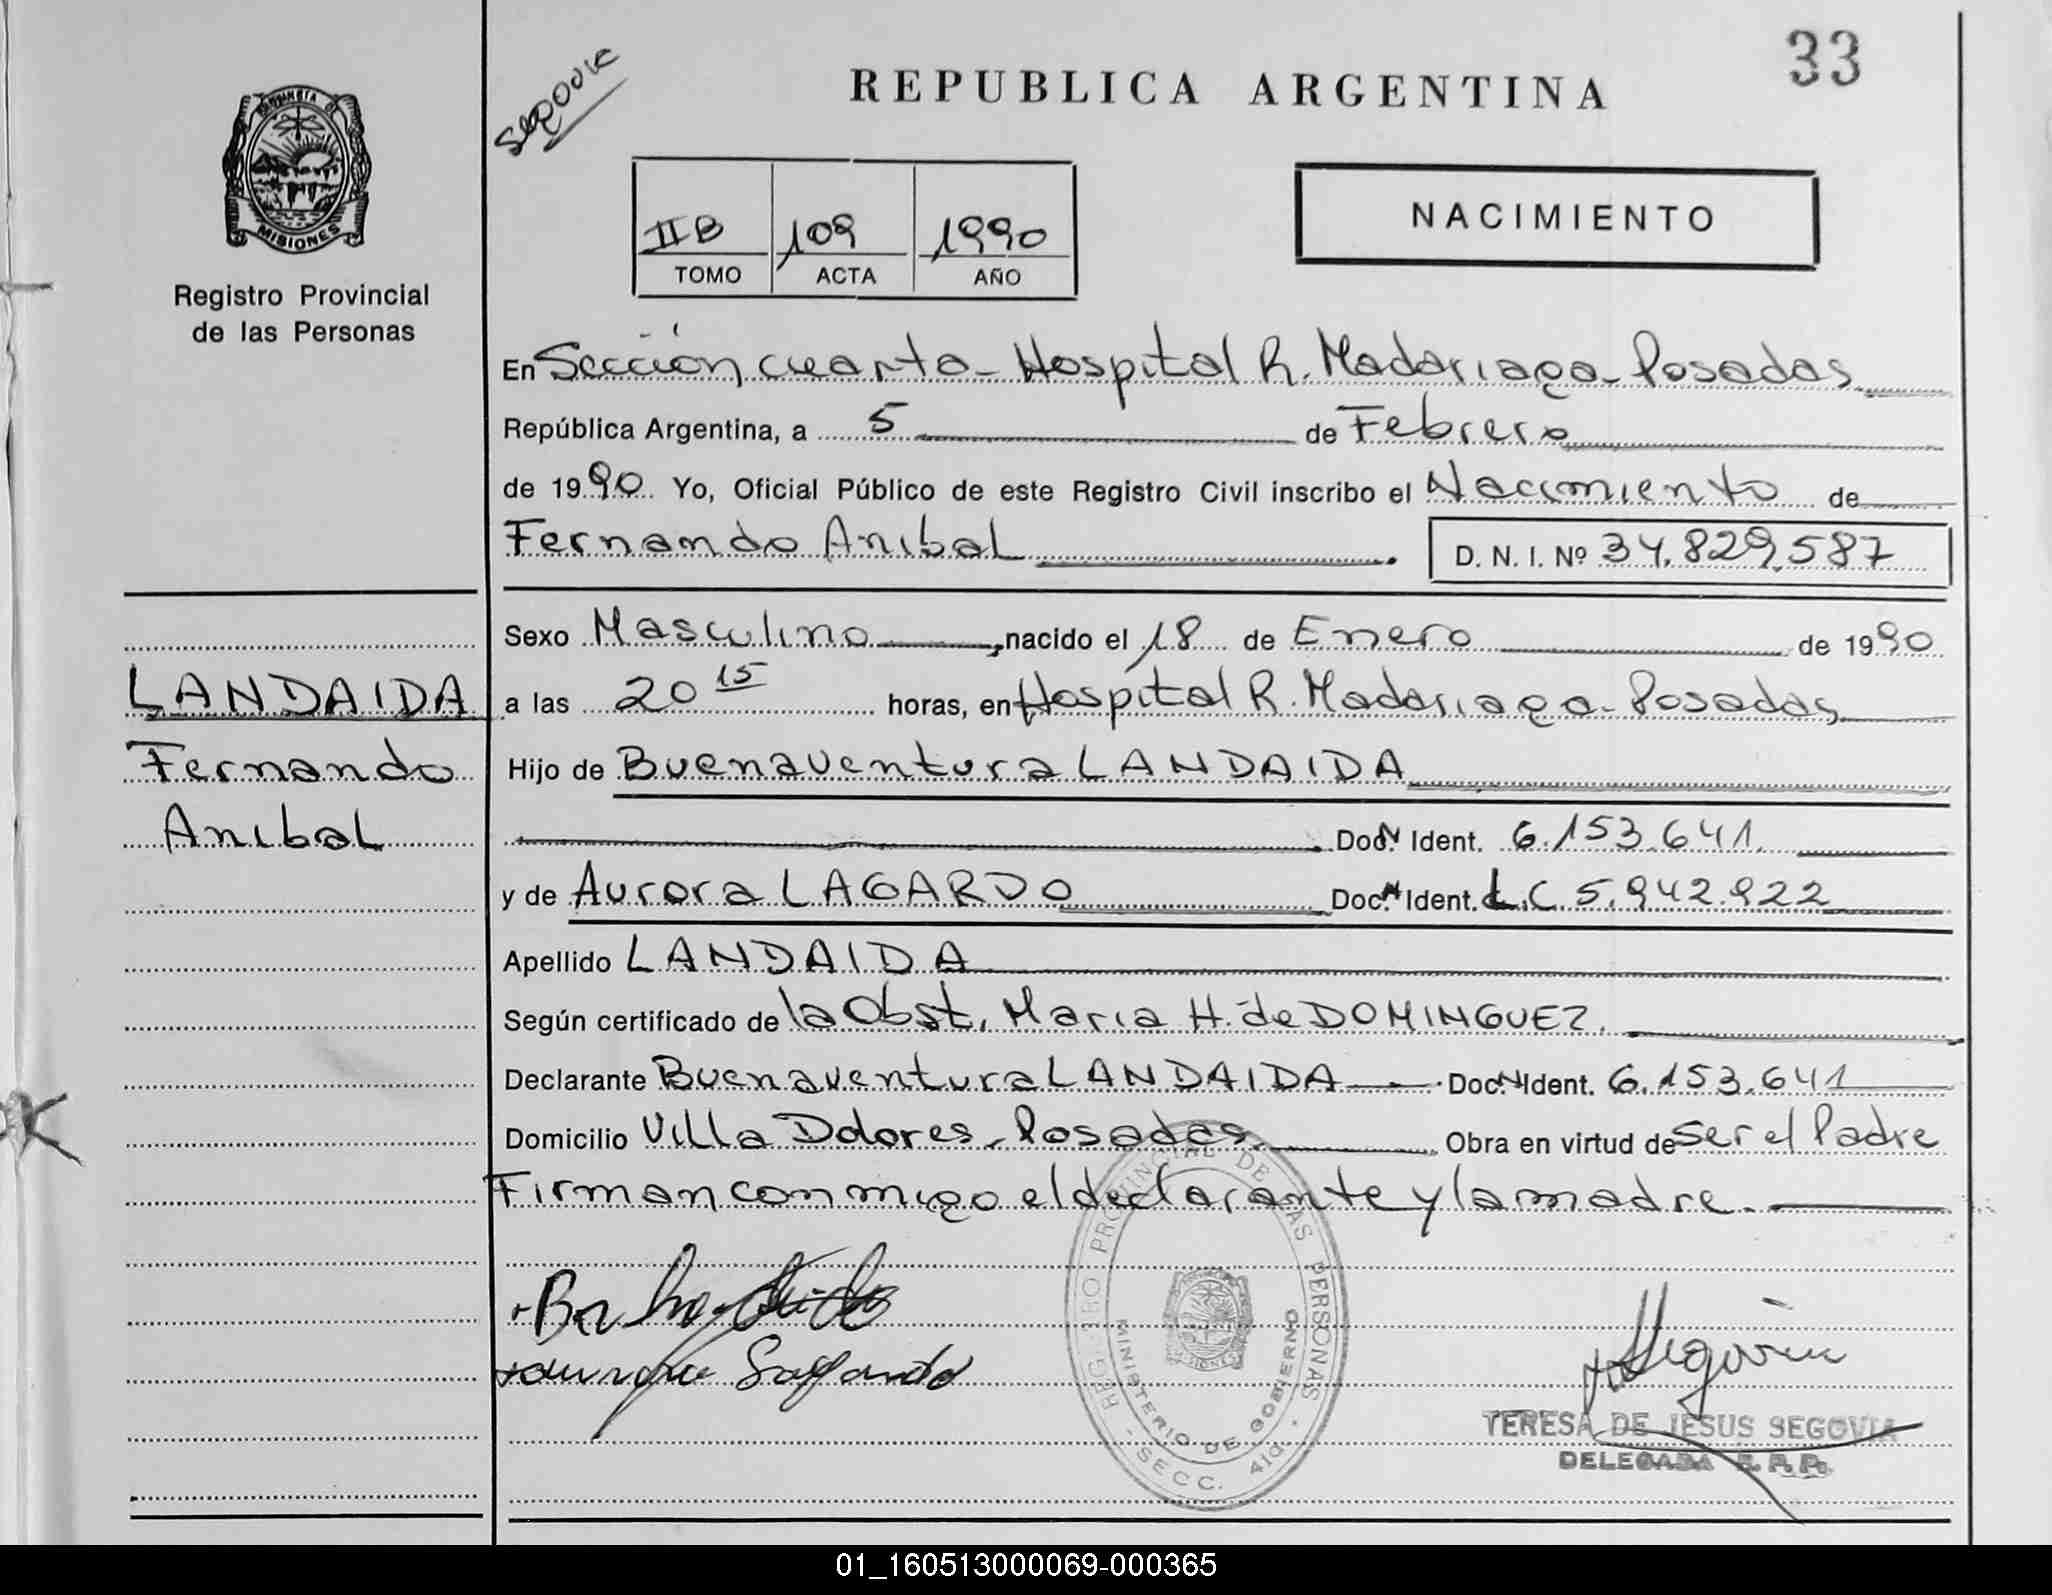 33
REPUBLICA ARGENTINA
Segovia
PROVINCIA DE
MISIONES
Registro Provincial
de las Personas
IIB 109 1990
TOMO ACTA AÑO
NACIMIENTO
En Sección cuarta - Hospital R. Madariaga - Posadas
República Argentina, a 5 de Febrero
de 1990. Yo, Oficial Público de este Registro Civil inscribo el Nacimiento de
Fernando Anibal D. N. I. Nº 34.829.587
Sexo Masculino, nacido el 18 de Enero de 1990
a las 20 15 horas, en Hospital R. Madariaga - Posadas
Hijo de Buenaventura LANDAIDA
Doc. N Ident. 6.153.641
y de Aurora LAGARDO Doc. N Ident. L.C 5.942.922
Apellido LANDAIDA
Según certificado de la Obst. Maria H. de DOMINGUEZ.
Declarante Buenaventura LANDAIDA Doc. N Ident. 6.153.641
Domicilio Villa Dolores - Posadas. Obra en virtud de ser el Padre
Firman conmigo el declarante y la madre.
LANDAIDA
Fernando
Anibal
REGISTRO PROVINCIAL DE LAS PERSONAS
MINISTERIO DE GOBIERNO
- SECC. 4ta. -
MISIONES
Segovia
TERESA DE JESUS SEGOVIA
DELEGADA R. P. P.
01_160513000069-000365